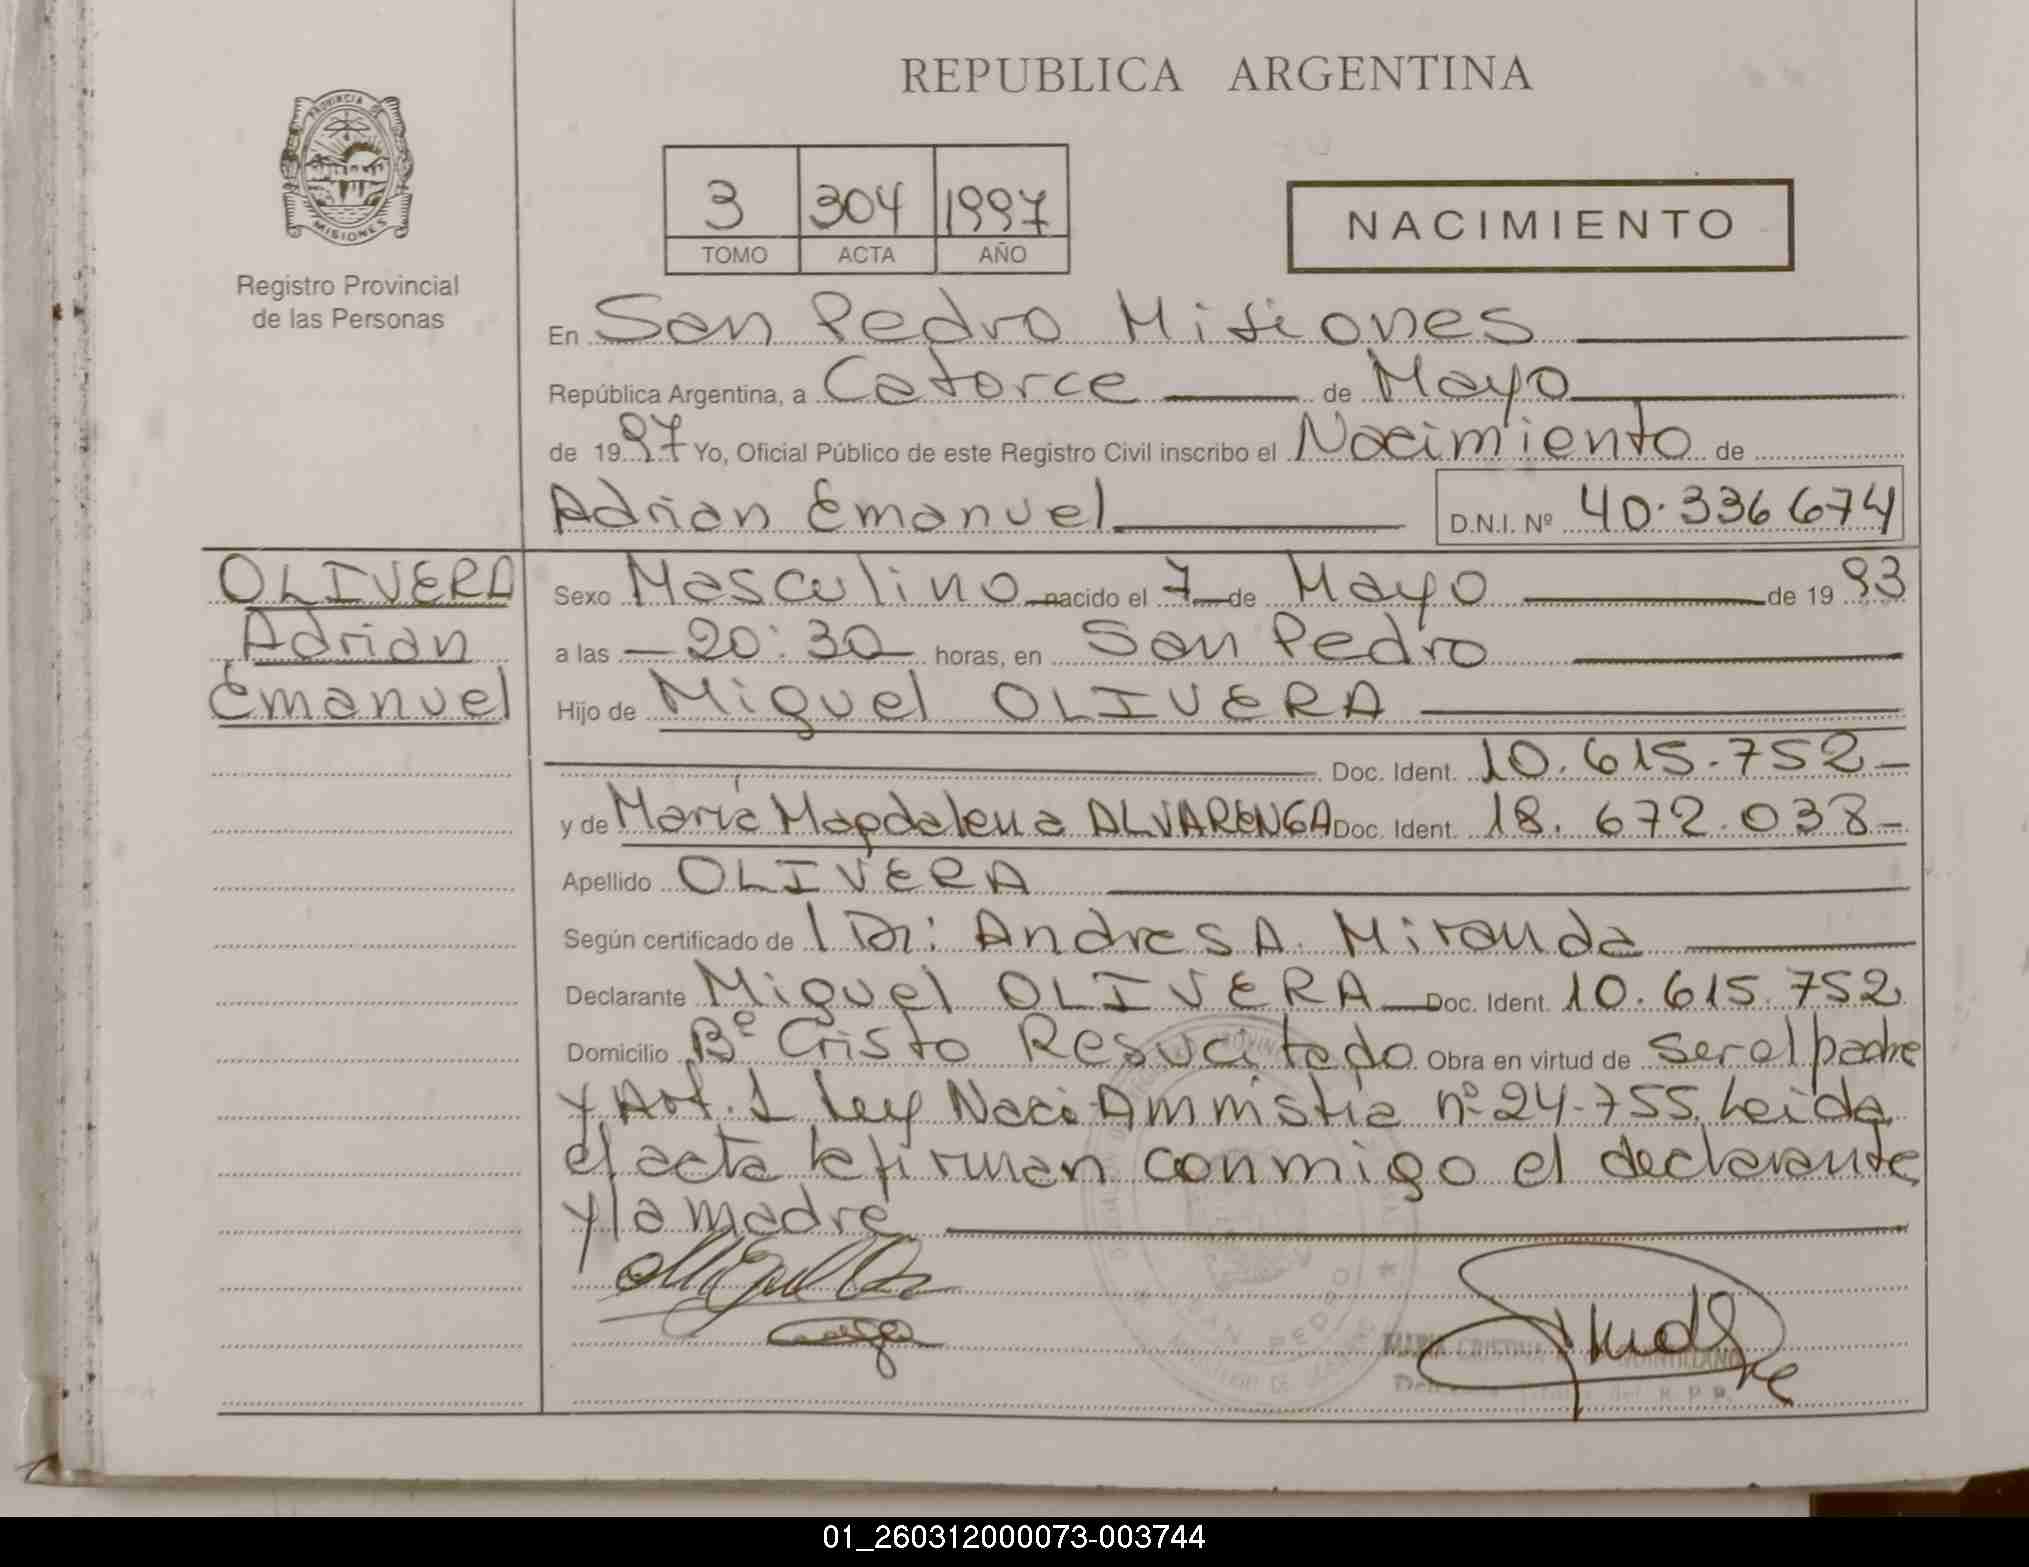 REPUBLICA ARGENTINA
PROVINCIA DE
MISIONES
Registro Provincial
de las Personas
3 304 1997
TOMO ACTA AÑO
NACIMIENTO
En San Pedro Misiones
República Argentina, a Catorce de Mayo
de 1997 Yo, Oficial Público de este Registro Civil inscribo el Nacimiento de
Adrian Emanuel D.N.I. Nº 40.336674
OLIVERA
Adrian
Emanuel
Sexo Masculino nacido el 7 de Mayo de 1993
a las 20:30 horas, en San Pedro
Hijo de Miguel OLIVERA
Doc. Ident. 10.615.752
y de María Magdalena ALVARENGA Doc. Ident. 18.672.038
Apellido OLIVERA
Según certificado de Dr: Andres A. Miranda
Declarante Miguel OLIVERA Doc. Ident. 10.615.752
Domicilio Bº Cristo Resucitado Obra en virtud de ser el padre
y Art. 1 Ley Naci Amnistia nº 24.755. Leida
el acta la firman conmigo el declarante
y la madre
SAN PEDRO
MARIA CRISTINA
01_260312000073-003744